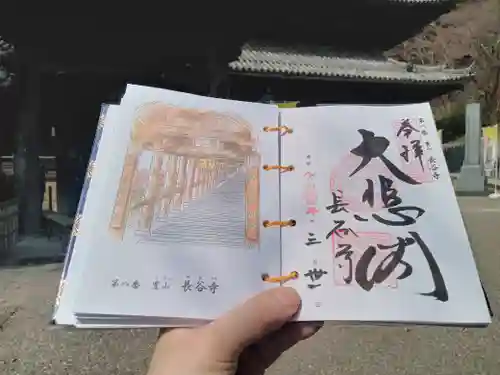 第八番 豊山 長谷寺
奉拝
第八番 豊山 長谷寺
大悲閣
長谷寺
三 月 卅一